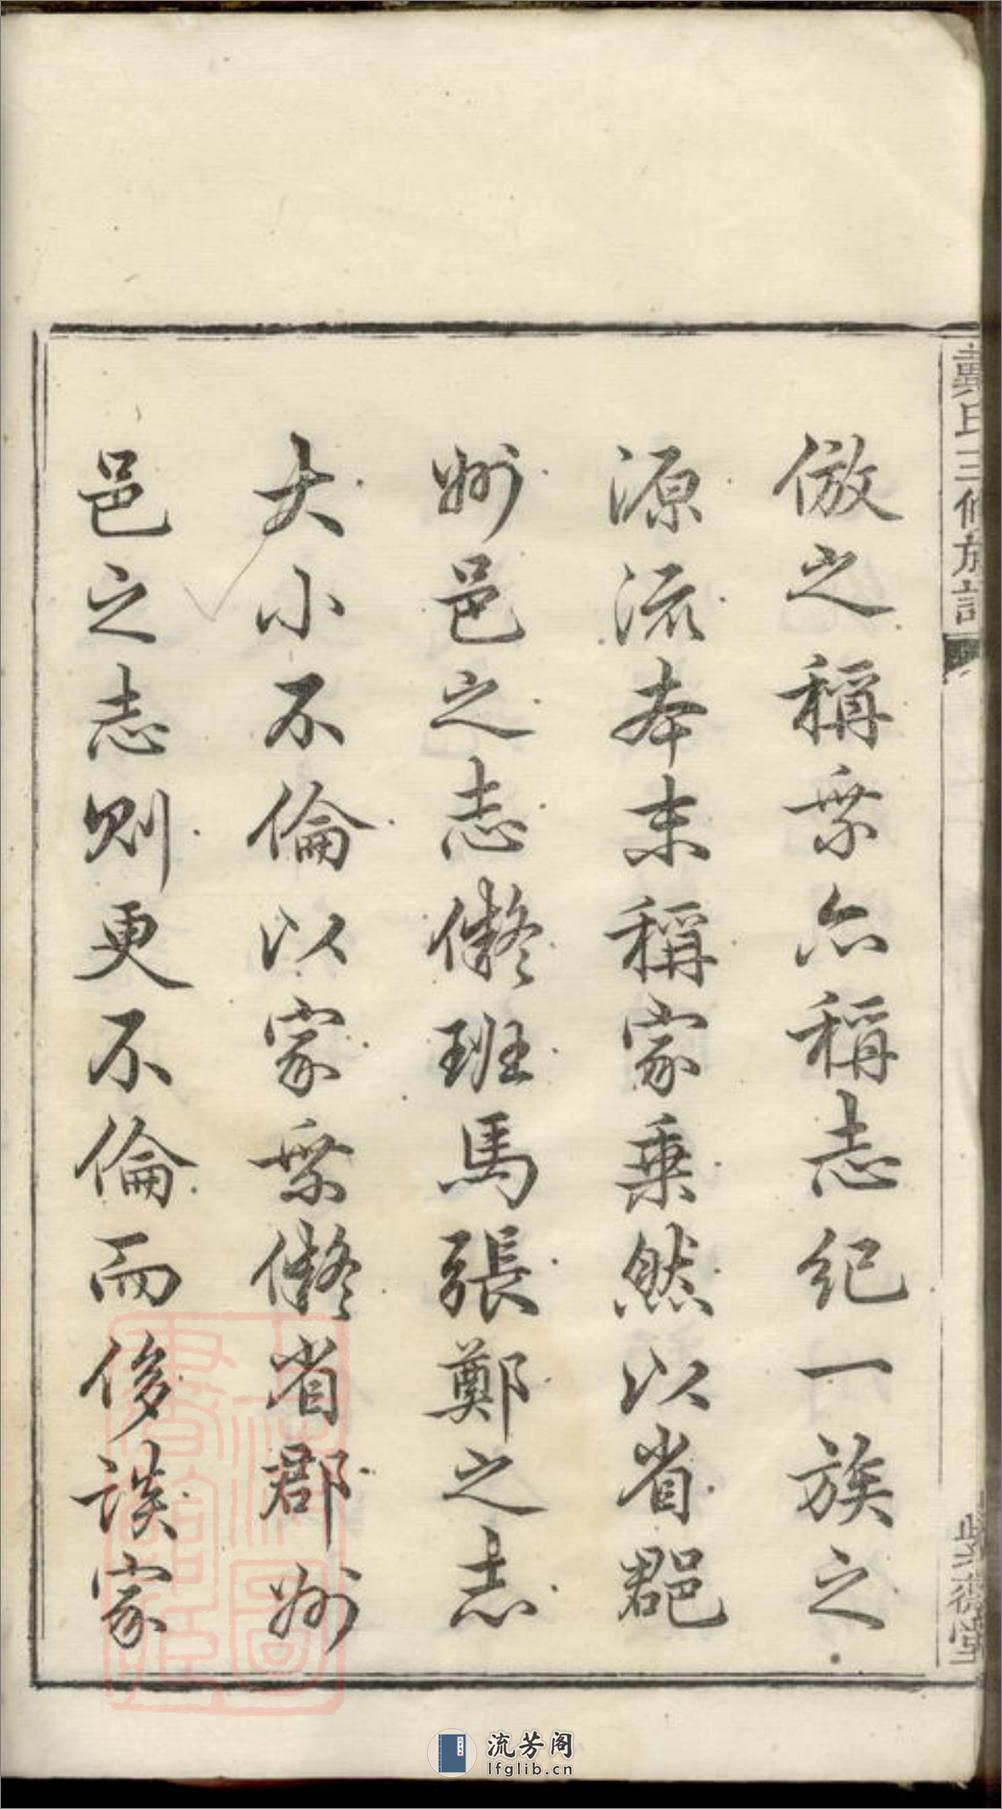 倣之稱乗亦稱志紀一族之
源流本末稱家乗然以省郡
州邑之志儗班馬張鄭之志
大小不倫以家乗儗省郡州
邑之志則更不倫而侈談家
戴氏三修族譜
流芳阁
lfglib.cn